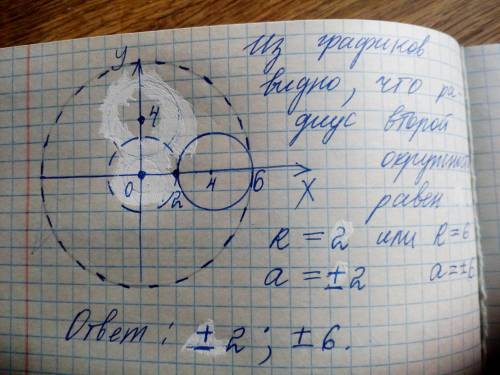 Из графиков
y
видно, что ра-
4
диус второй
окружност
0 2 4 6 X
равен
R = 2 или R = 6
a = ±2 a = ±6
Ответ: ±2; ±6.